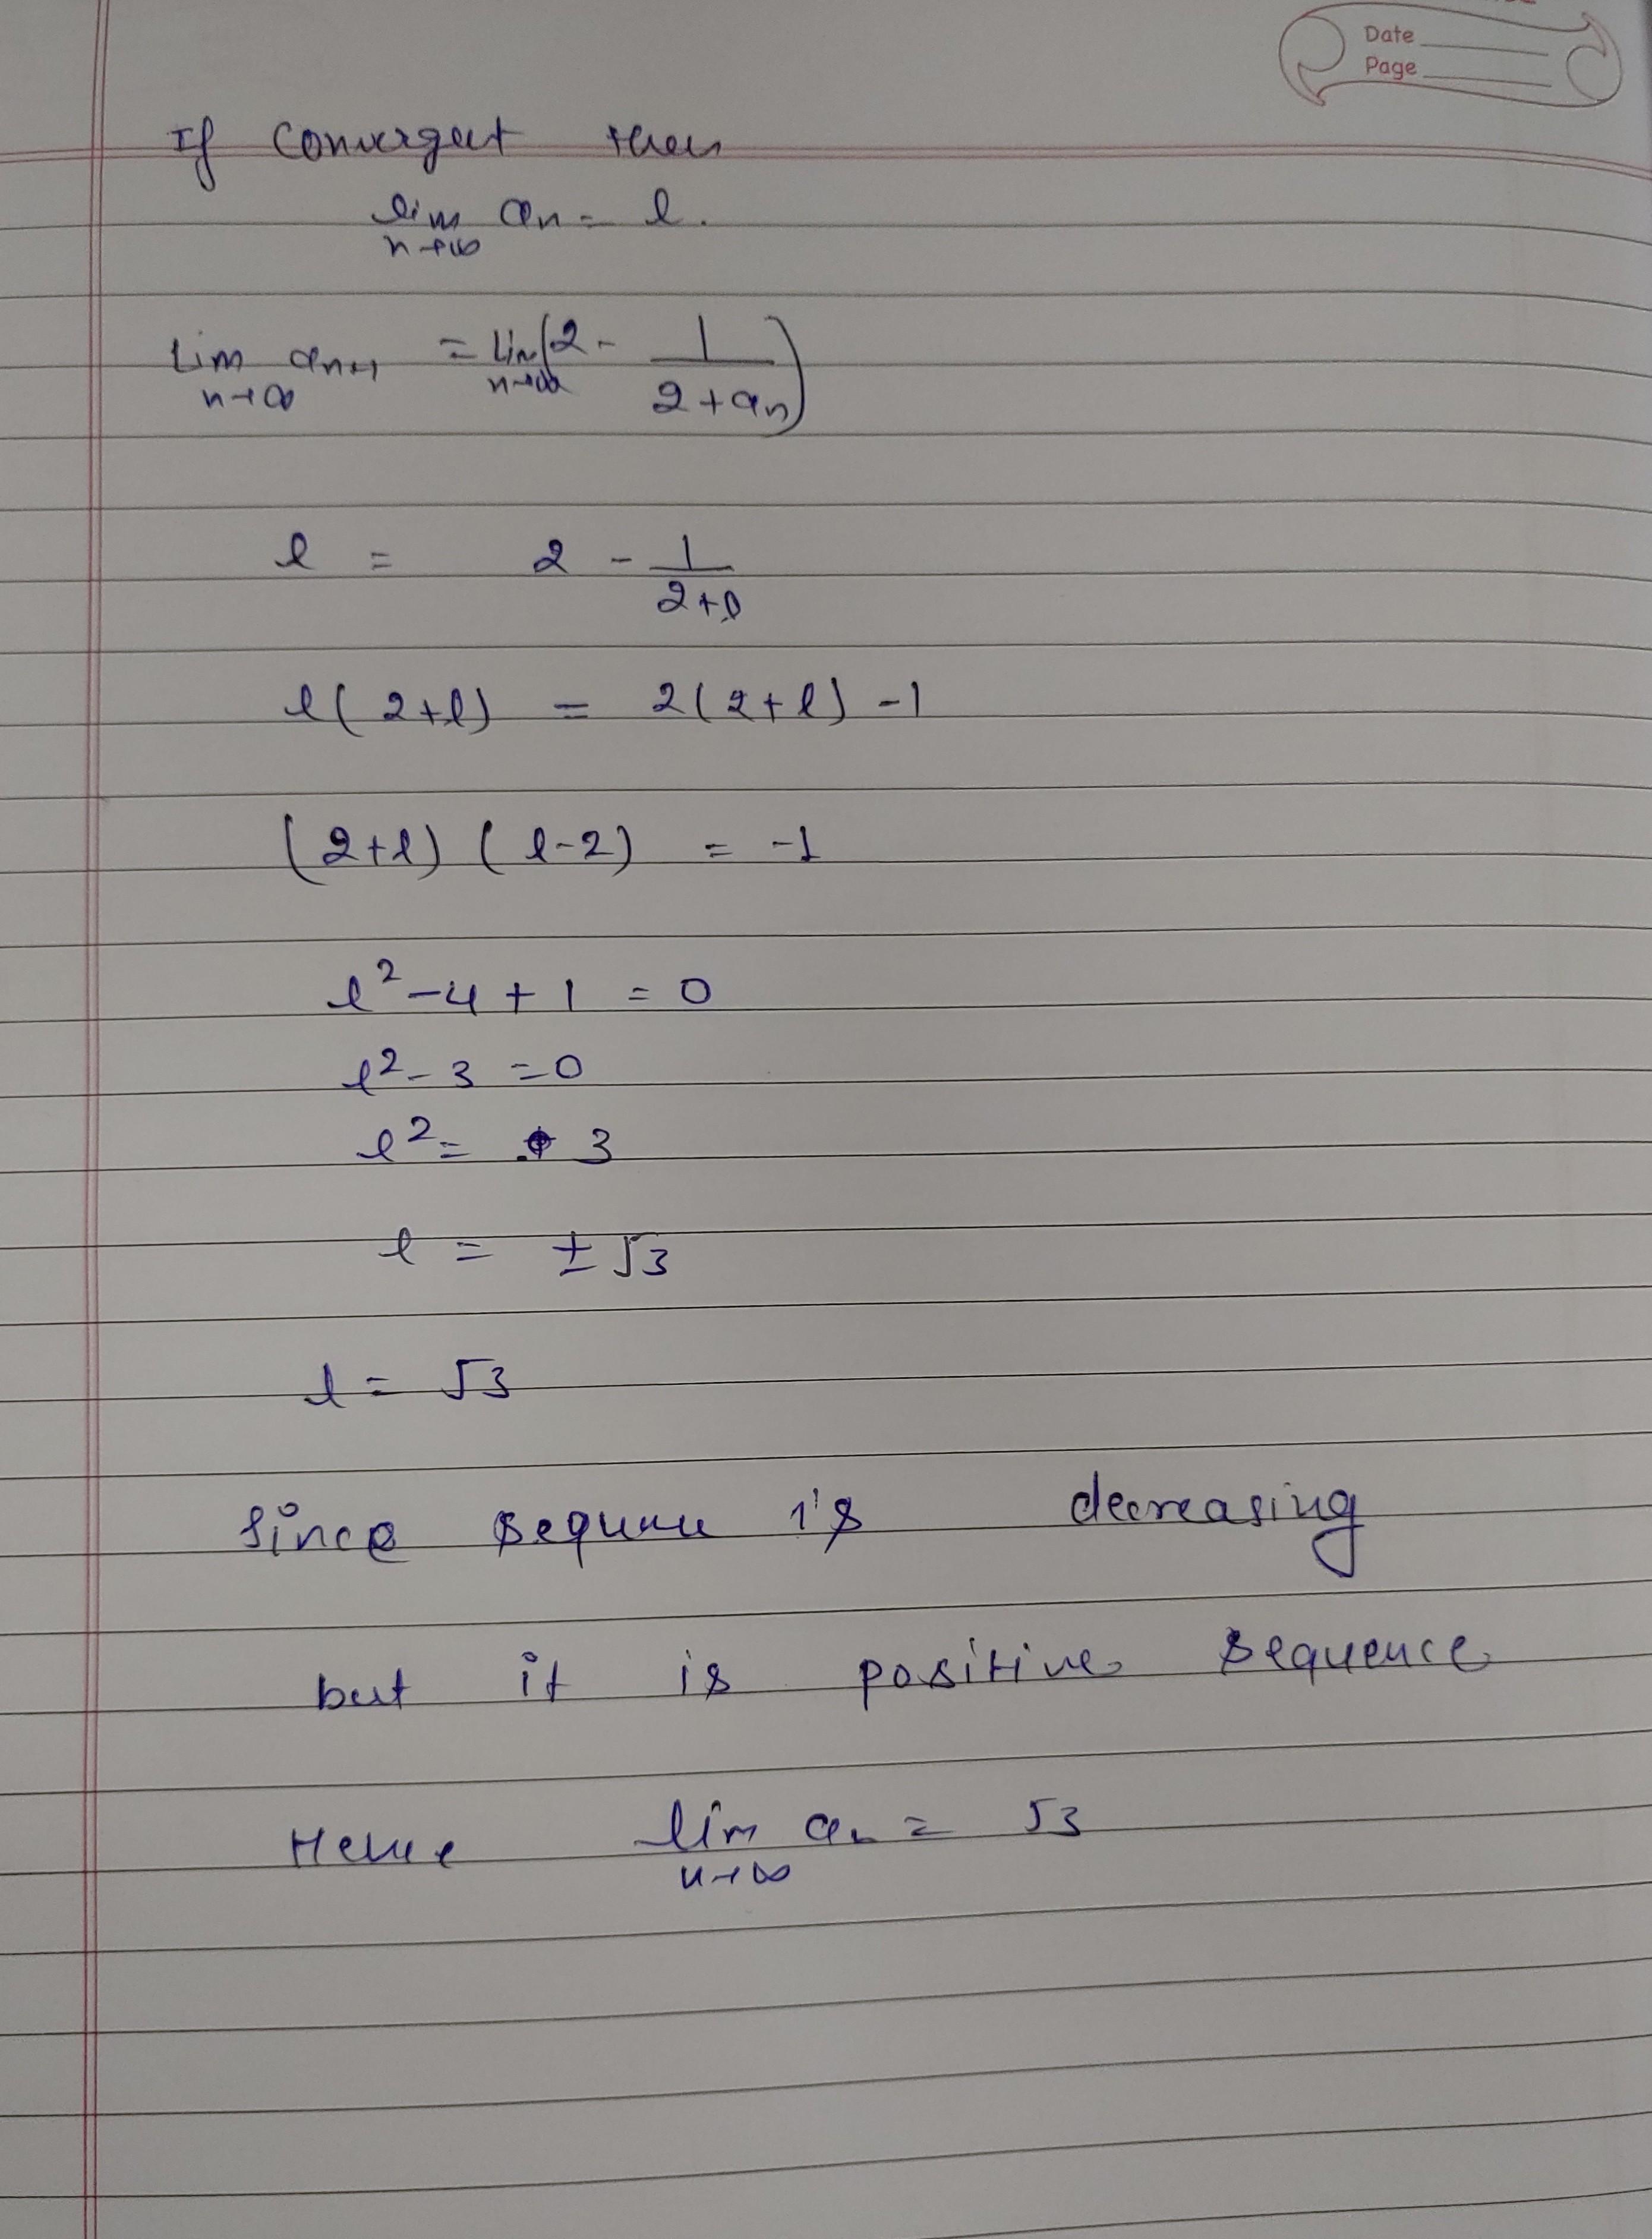 Date
Page
If convergent then
lim an = l.
n→∞
Lim an+1 = Lim(2 - 1
n→∞ n→∞ 2+an)
l = 2 - 1
2+l
l(2+l) = 2(2+l) -1
(2+l) (l-2) = -1
l²-4+1 = 0
l²-3 =0
l²= 3
l = ±√3
l = √3
Since sequence is decreasing
but it is positive sequence
Hence lim an = √3
n→∞